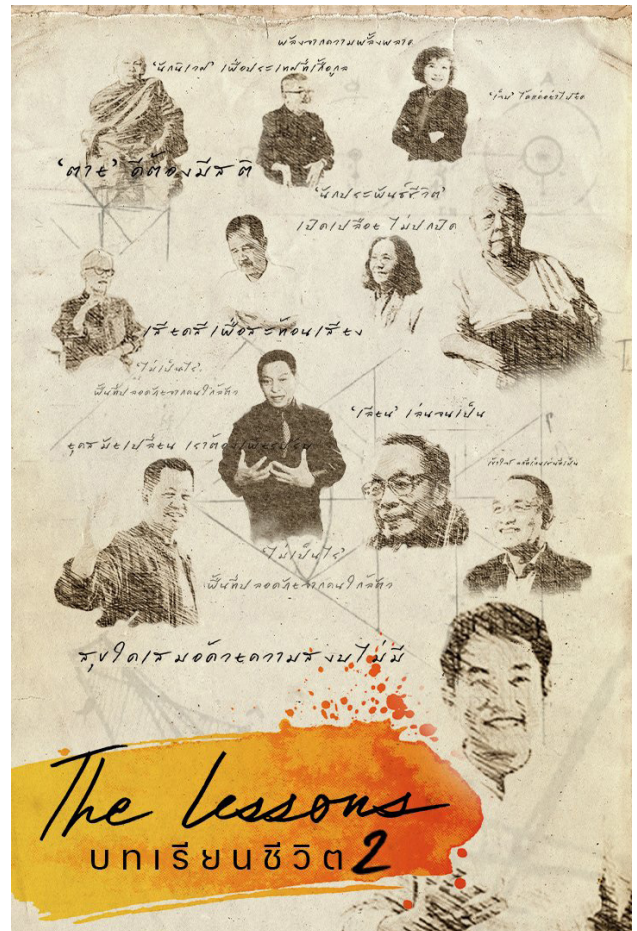 พลังจากความพลั้งพลาด
'นักนิเวศ' เพื่อประเทศที่เกื้อกูล
'เจ็บ' ได้แต่อย่าไปยึด
'ตาย' ดีต้องมีสติ
'นักประพันธ์ชีวิต'
เปิดเปลือย ไม่ปกปิด
เสียดสีเพื่อสะท้อนเสียง
'ไม่เป็นไร'
พื้นที่ปลอดภัยจากคนใกล้ตัว
'เลียน' เล่นจนเป็น
ยุคสมัยเปลี่ยน เราต้อง
'ไม่เป็นไร'
พื้นที่ปลอดภัยจากคนใกล้ตัว
สุขใดเสมอด้วยความสงบไม่มี
The lessons
บทเรียนชีวิต 2